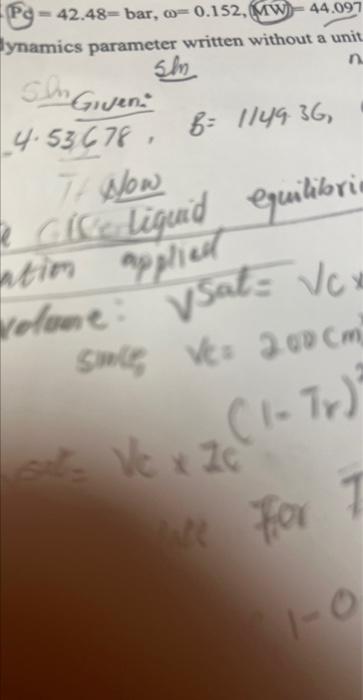 Pc = 42.48= bar, ω= 0.152, MW = 44.097
dynamics parameter written without a unit
Sln
Sln Given:
4.53678, B= 1149.36,
Now
Liquid equilibri
ation applied
volume: Vsat= Vc x
since, Vc= 200 cm
(1-Tr)
sat= Vc x Zc
For T
1-0